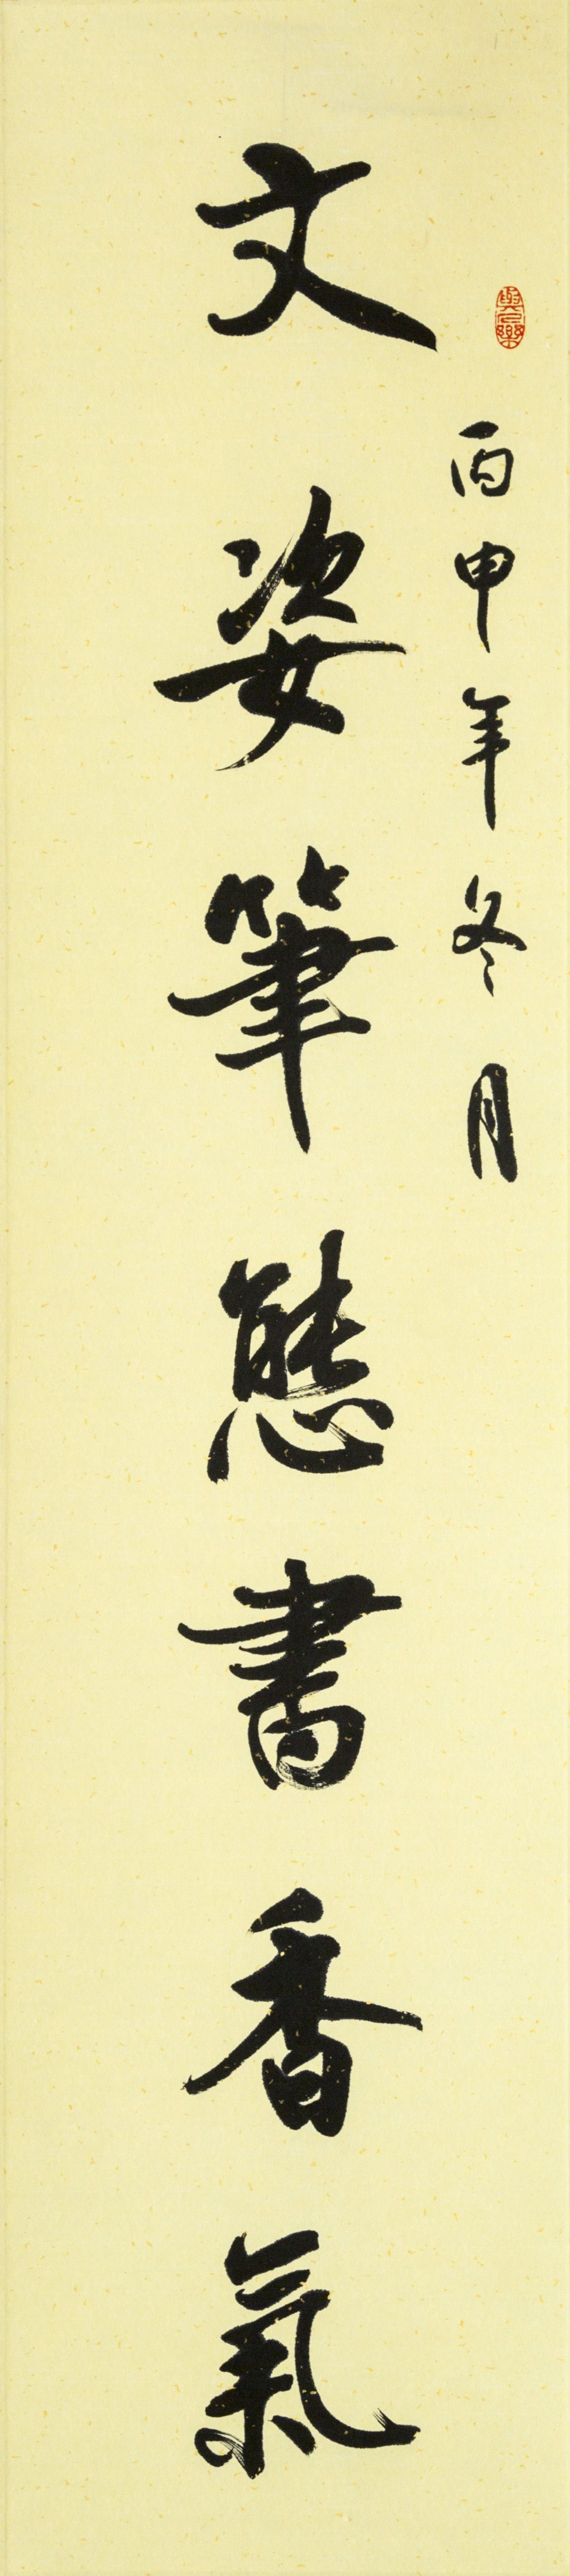 丙申年冬月
文姿筆態書香氣